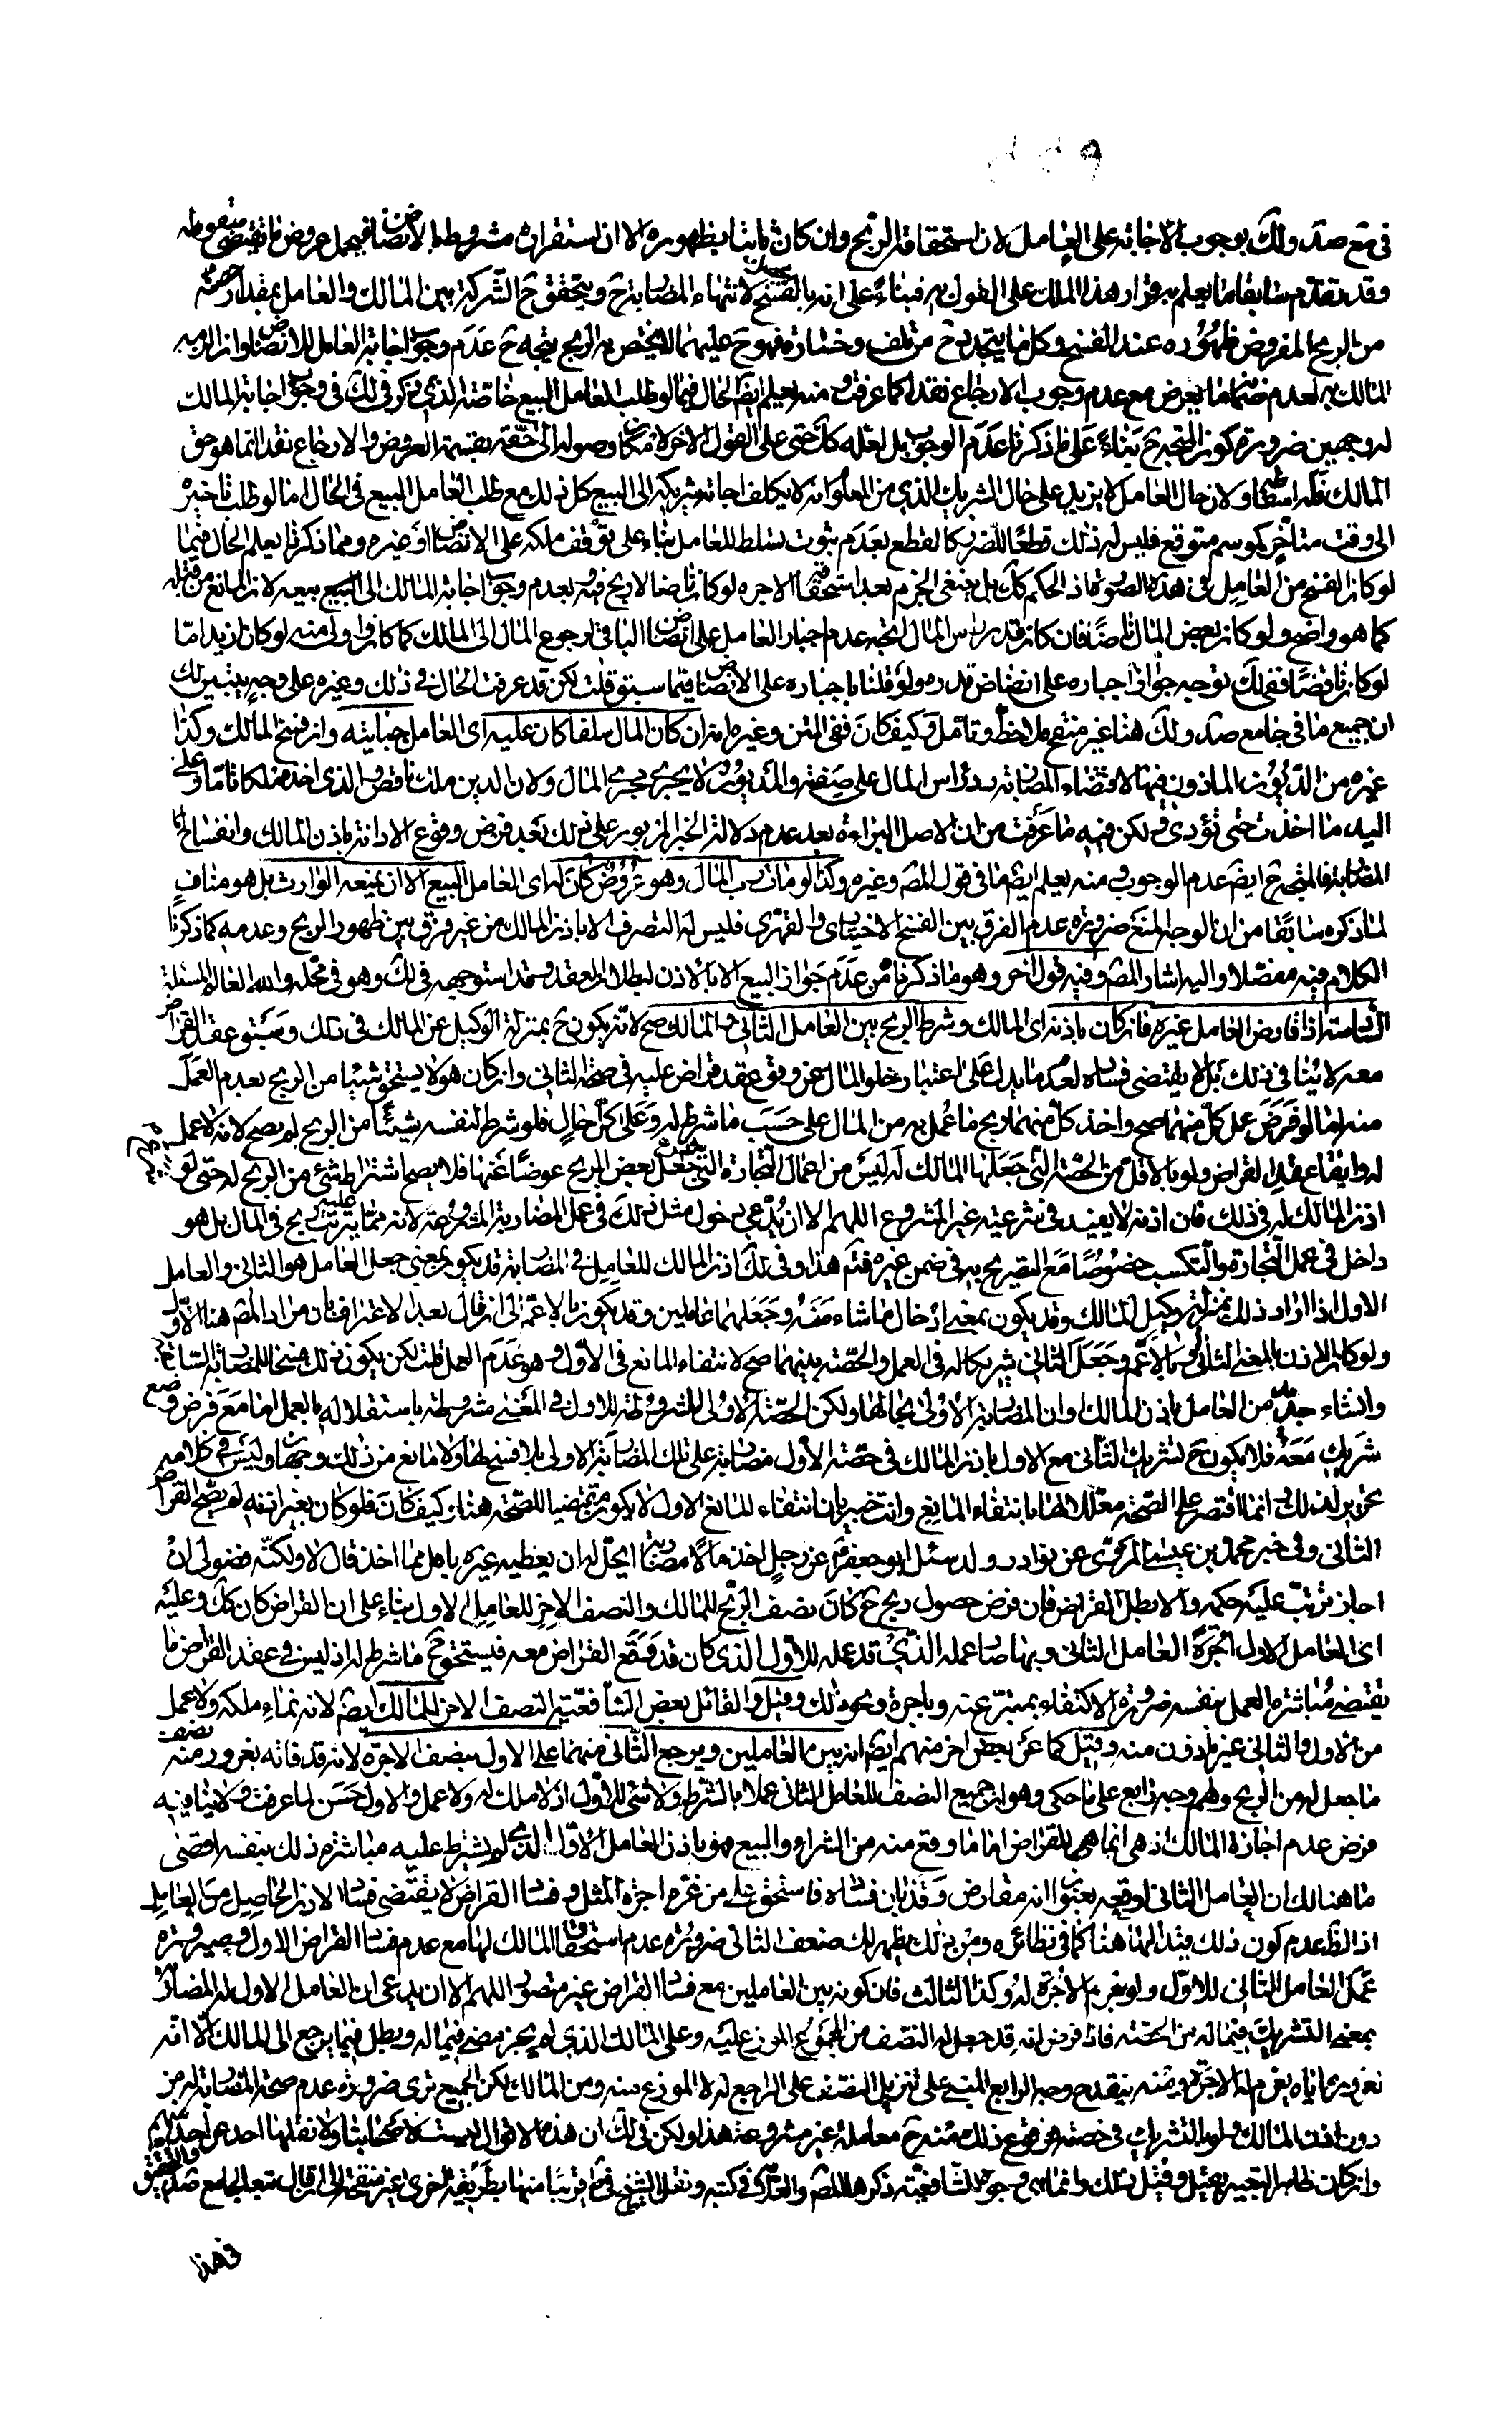 في جامع صد وذلك بوجوب الاجابة على العامل لان استحقاقه الربح وان كان ثابتا بظهوره الا ان استقراره مشروط بالانضاض فيحمل عروض ما يقتضى سقوطه
وقد تقدم سابقا ما يعلم به قرار هذا الملك على القول به فبناء على انه بالفسخ لانتهاء المضاربة ح ويتحقق ح الشركة بين المالك والعامل بمقدار حصته
من الربح المفروض ظهوره عند الفسخ وكل ما يتجدد ح من تلف وخسارة فهو ح عليهما لا يختص به الربح يتجه ح عدم وجوب اجابة العامل للانضاض لو اراده
المالك به لعدم ضمان ما يعرض مع عدم وجوب الارجاع نقدا كما عرفت ومنه يعلم ايضا الحال فيما لو طلب العامل البيع خاصة الذي ذكر في لك في وجوب اجابة المالك
له وجهين ضرورة كون المتجه ح بناء على ما ذكرنا عدم الوجوب بل لعله كك حتى على القول الاخر لامكان وصوله الى حقه بقسمة العروض والارجاع نقدا انما هو حق
المالك فله اسقاطه ولان حال العامل لا يزيد على حال الشريك الذي من المعلوم انه لا يكلف اجابة شريكه الى البيع كل ذلك مع طلب العامل البيع في الحال اما لو طلب تاخيره
الى وقت متاخر كموسم متوقع فليس له ذلك قطعا للضرر كالقطع بعدم ثبوت تسلط للعامل بناء على توقف ملكه على الانضاض او غيره ومما ذكرنا يعلم الحال فيما
لو كان الفسخ من العامل في هذه الصورة اذ الحكم كك بل ينبغى الجزم بعد استحقاقه الاجره لو كان ناضا لا ربح فيه وبعدم وجوب اجابة المالك الى البيع بيعه لان المانع من قبله
كما هو واضح ولو كان بعض المال ناضا فان كان قدر راس المال اتجه عدم اجبار العامل على انضاض الباقي لرجوع المال الى المالك كما كان واولى منه لو كان ازيد اما
لو كان ناقصا ففي لك توجه جواز اجباره على انضاض قدره ولو قلنا باجباره على الانضاض فيما سبق قلت لكن قد عرفت الحال في ذلك وغيره على وجه يتبين لك
ان جميع ما في جامع صد ولك هنا غير منقح فلاحظ وتامل وكيف كان ففي المتن وغيره انه ان كان المال سلفا كان عليه اى العامل جبايته وان فسخ المالك وكذا
غيره من الديون الماذون فيها لاقتضاء المضاربة رد راس المال على صفته والديون لا يجرى مجرى المال ولان الدين ملك ناقص والذى اخذه ملكا تاما وعلى
اليد ما اخذت حتى تؤدى ولكن فيه ما عرفت من ان الاصل البراءة بعد عدم دلالة الخبر المزبور على ذلك بعد فرض وقوع الادانة باذن المالك وانفساخ
المضاربة فالمتجه ح ايضا عدم الوجوب ومنه يعلم ايضا ما في قول المص وغيره وكذا لو مات رب المال وهو عروض كان له اى العامل البيع الا ان يمنعه الوارث بل هو مناف
لما ذكره سابقا من ان الوجه المنع ضرورة عدم الفرق بين الفسخ الاختيارى والقهرى فليس له التصرف الا باذن المالك من غير فرق بين ظهور الربح وعدمه كما ذكرنا
الكلام فيه مفصلا واليه اشار المص وفيه قول اخر وهو ما ذكرنا من عدم جواز البيع الا بالاذن لبطلان العقد وقد استوجهه في لك وهو في محله والله العالم المسئلة
السادسة اذا قارض العامل غيره فان كان باذنه اى المالك وشرط الربح بين العامل الثاني والمالك صح لانه يكون ح بمنزلة الوكيل عن المالك في ذلك وسبق عقد القراض
معه لا ينافى ذلك بل لا يقتضى فساده لعدم ما يدل على اعتبار خلو المال عن وقوع عقد قراض عليه في صحة الثاني وان كان هو لا يستحق شيئا من الربح بعدم العمل
منه اما لو فرض عمل كل منهما صح واخذ كل منهما ربح ما عمل به من المال على حسب ما شرط له وعلى كل حال فلو شرط لنفسه شيئا من الربح لم يصح لانه لا عمل
له وايقاع عقد القراض ولو بالاقل من الحصة التى جعلها المالك له ليس من اعمال التجارة التي جعل بعض الربح عوضا عنها فلا يصح اشتراط شئ من الربح له حتى لو
اذن المالك له في ذلك فان اذنه لا يفيد في شرعية غير المشروع اللهم الا ان يدعى دخول مثل ذلك في عمل المضاربة المشروعة لانه مما يترتب عليه ربح في المال بل هو
داخل في عمل التجارة والتكسب خصوصا مع التصريح به في ضمن غيره فتم هذا وفي لك اذن المالك للعامل في المضاربة قد يكون بمعنى جعل العامل هو الثاني والعامل
الاول اذا اراد ذلك بمنزلة وكيل المالك وقد يكون بمعنى ادخال من شاء معه وجعلهما عاملين وقد يكون بالاعم الى ان قال بعد الاعتراف بان مراد المص هنا الاول
ولو كان الاذن بالمعنى الثاني او بالاعم وجعل الثاني شريكا له في العمل والحصة بينهما صح لانتفاء المانع في الاول وهو عدم العمل قلت لكن يكون ذلك فسخا للمضاربة السابقة
وانشاء جديد من العامل باذن المالك وان المضاربة الاولى بحالها ولكن الحصة الاولى المشروطة للاول في المعنى مشروطة باستقلاله بالعمل اما مع فرض وقوع
شريك معه فلا يكون ح لتشريك الثاني مع الاول باذن المالك في حصة الاول مضاربة على تلك المضاربة الاولى بلا فسخ لها ولا مانع من ذلك وجهان وليس في كلامهم
تحرير لذلك انما اقتصر على الصحة معللا لها بانتفاء المانع وانت خبير بان انتفاء المانع الاول لا يكون مقتضيا للصحة هنا وكيف كان فلو كان بغير اذنه لم يصح القراض
الثاني وفي خبر محمد بن عيسى المروى عن نوادر ولده سئل ابو جعفر ع عن رجل اخذ مالا مضاربة ايحل له ان يعطيه غيره باقل مما اخذ قال لا ولكنه فضولى ان
اجاز ترتب عليه حكمه والا بطل القراض فان فرض حصول ربح ح كان نصف الربح للمالك والنصف الاخر للعامل الاول بناء على ان القراض كان كك وعليه
اى العامل الاول اجرة العامل الثاني وبها صار عمله الذي قد عمله للاول الذي كان قد وقع القراض معه فيستحق ح ما شرط له اذ ليس في عقد القراض ما
يقتضى مباشرة العمل بنفسه ضرورة الاكتفاء بمتبرع عنه وباجرة ونحو ذلك وقيل والقائل بعض الشافعية النصف الاخر للمالك ايضا لانه نماء ملكه ولا عمل
من الاول والثاني غير ماذون منه وقيل كما عن بعض اخر منهم ايضا انه بين العاملين ويرجع الثاني منهما على الاول بنصف الاجرة لانه قد فاته بغروره منه نصف
ما جعل له من الربح ولهم وجه رابع على ما حكى وهو ان جميع النصف للعامل الثاني عملا بالشرط ولا شئ للاول اذ لا ملك له ولا عمل والاول حسن لما عرفت ولا ينافيه
فرض عدم اجازة المالك اذ هى انما هى للقراض اما ما وقع منه من الشراء والبيع فهو باذن العامل الاول الذي لم يشترط عليه مباشرة ذلك بنفسه اقصى
ما هنالك ان العامل الثاني اوقعه بعنوان انه مقارض وقد بان فساده فاستحق على من غره اجرة المثل وفساد القراض لا يقتضى فساد الاذن الحاصل من العامل
اذ الظ عدم كون ذلك قيدا لها هنا كما في نظائره ومن ذلك يظهر لك ضعف الثاني ضرورة عدم استحقاق المالك لها مع عدم فساد القراض الاول وصيرورة
عمل العامل الثاني للاول ولو بغرم الاجرة له وكذا الثالث فان كونه بين العاملين مع فساد القراض غير متصور اللهم الا ان يدعى ان العامل الاول له المضاربة
بمعنى التشريك فيما له من الحصة فاذا فرض انه قد جعل له النصف من المجموع الموزع عليه وعلى المالك الذي لم يجز مضى فيما له وبطل فيما يرجع الى المالك الا انه
لغروره اياه يغرم له الاجرة ومنه ينقدح وجه الرابع المبنى على تنزيل النصف على الراجع له لا الموزع بينه ومن المالك لكن الجميع كما ترى ضرورة عدم صحة المضاربة له من
دون اذن المالك ولو بالتشريك في حصته فوقوع ذلك منه ح معاملة غير مشروعة هذا ولكن في لك ان هذه الاقوال ليست لاصحابنا ولا نقلها احد عن احد منهم
وان كان ظاهر التعبير بقيل وقيل ذلك وانما هى وجوه للشافعية ذكرها المص والعلامة في كتبه ونقل الشيخ في ط قريبا منها بطريقة اخرى غير منقحة الى ان قال تبعا لجامع صد والتحقيق
في هذا